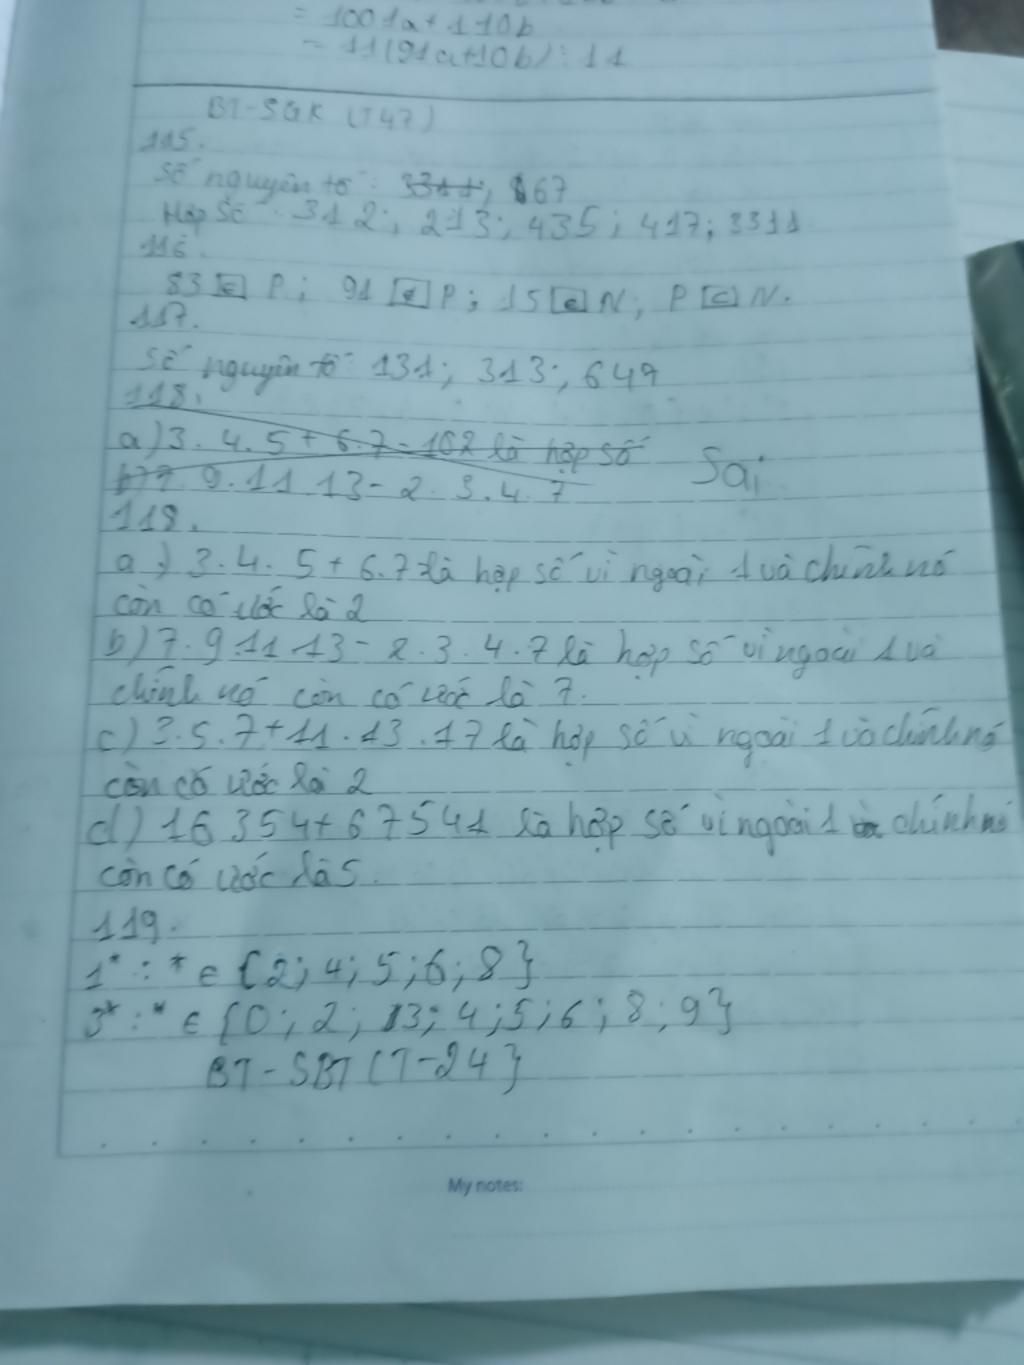 = 1001a+110b
= 11(91a+10b) : 11
BT-SGK (T47)
115.
Số nguyên tố : 3311; 67
Hợp số : 312; 213; 435; 417; 3311
116.
83 ∈ P; 91 ∉ P; 15 ∈ N; P ⊂ N.
117.
Số nguyên tố : 131; 313; 649
118.
a) 3. 4. 5 + 6.7 = 102 là hợp số Sai
b) 7. 9. 11 13 - 2. 3. 4. 7
118.
a) 3. 4. 5 + 6.7 là hợp số vì ngoài 1 và chính nó
còn có ước là 2
b) 7. 9 11 13 - 2. 3. 4. 7 là hợp số vì ngoài 1 và
chính nó còn có ước là 7.
c) 3.5.7+11.13.17 là hợp số vì ngoài 1 và chính nó
còn có ước là 2
d) 16 354+67541 là hợp số vì ngoài 1 và chính nó
còn có ước là 5.
119.
1* : * ∈ {2; 4; 5; 6; 8}
3* : * ∈ {0; 2; 3; 4; 5; 6; 8; 9}
BT-SBT (T-24}
My notes: